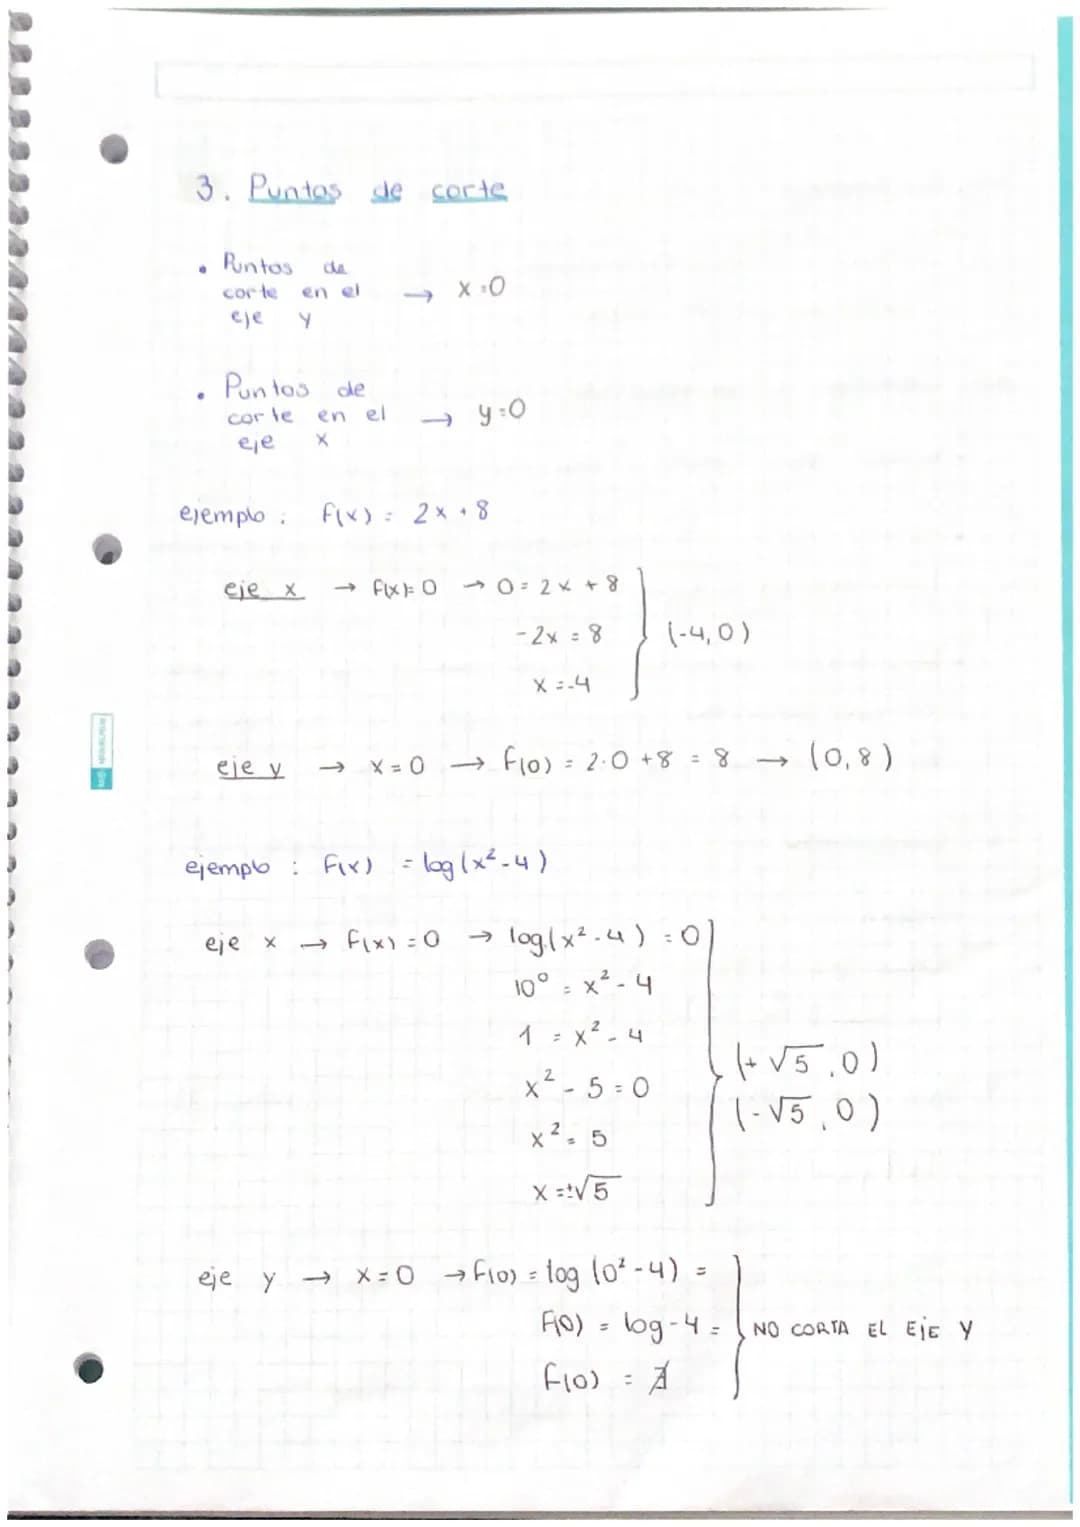 3. Puntos de corte
• Puntos de
corte en el → x=0
eje y
• Puntos de
corte en el → y=0
eje x
ejemplo: f(x) = 2x+8
eje x → f(x)=0 → 0=2x+8
-2x = 8
(-4,0)
x=-4
eje y → x=0 → f(0) = 2·0+8 = 8 → (0,8)
ejemplo: f(x) = log(x²-4)
eje x → f(x)=0 → log(x²-4)=0
10⁰ = x²-4
1 = x²-4
(+√5,0)
x²-5=0
(-√5,0)
x²=5
x=±√5
eje y → x=0 → f(0) = log(0²-4) =
f(0) = log-4 = NO CORTA EL EJE Y
f(0) = ∄